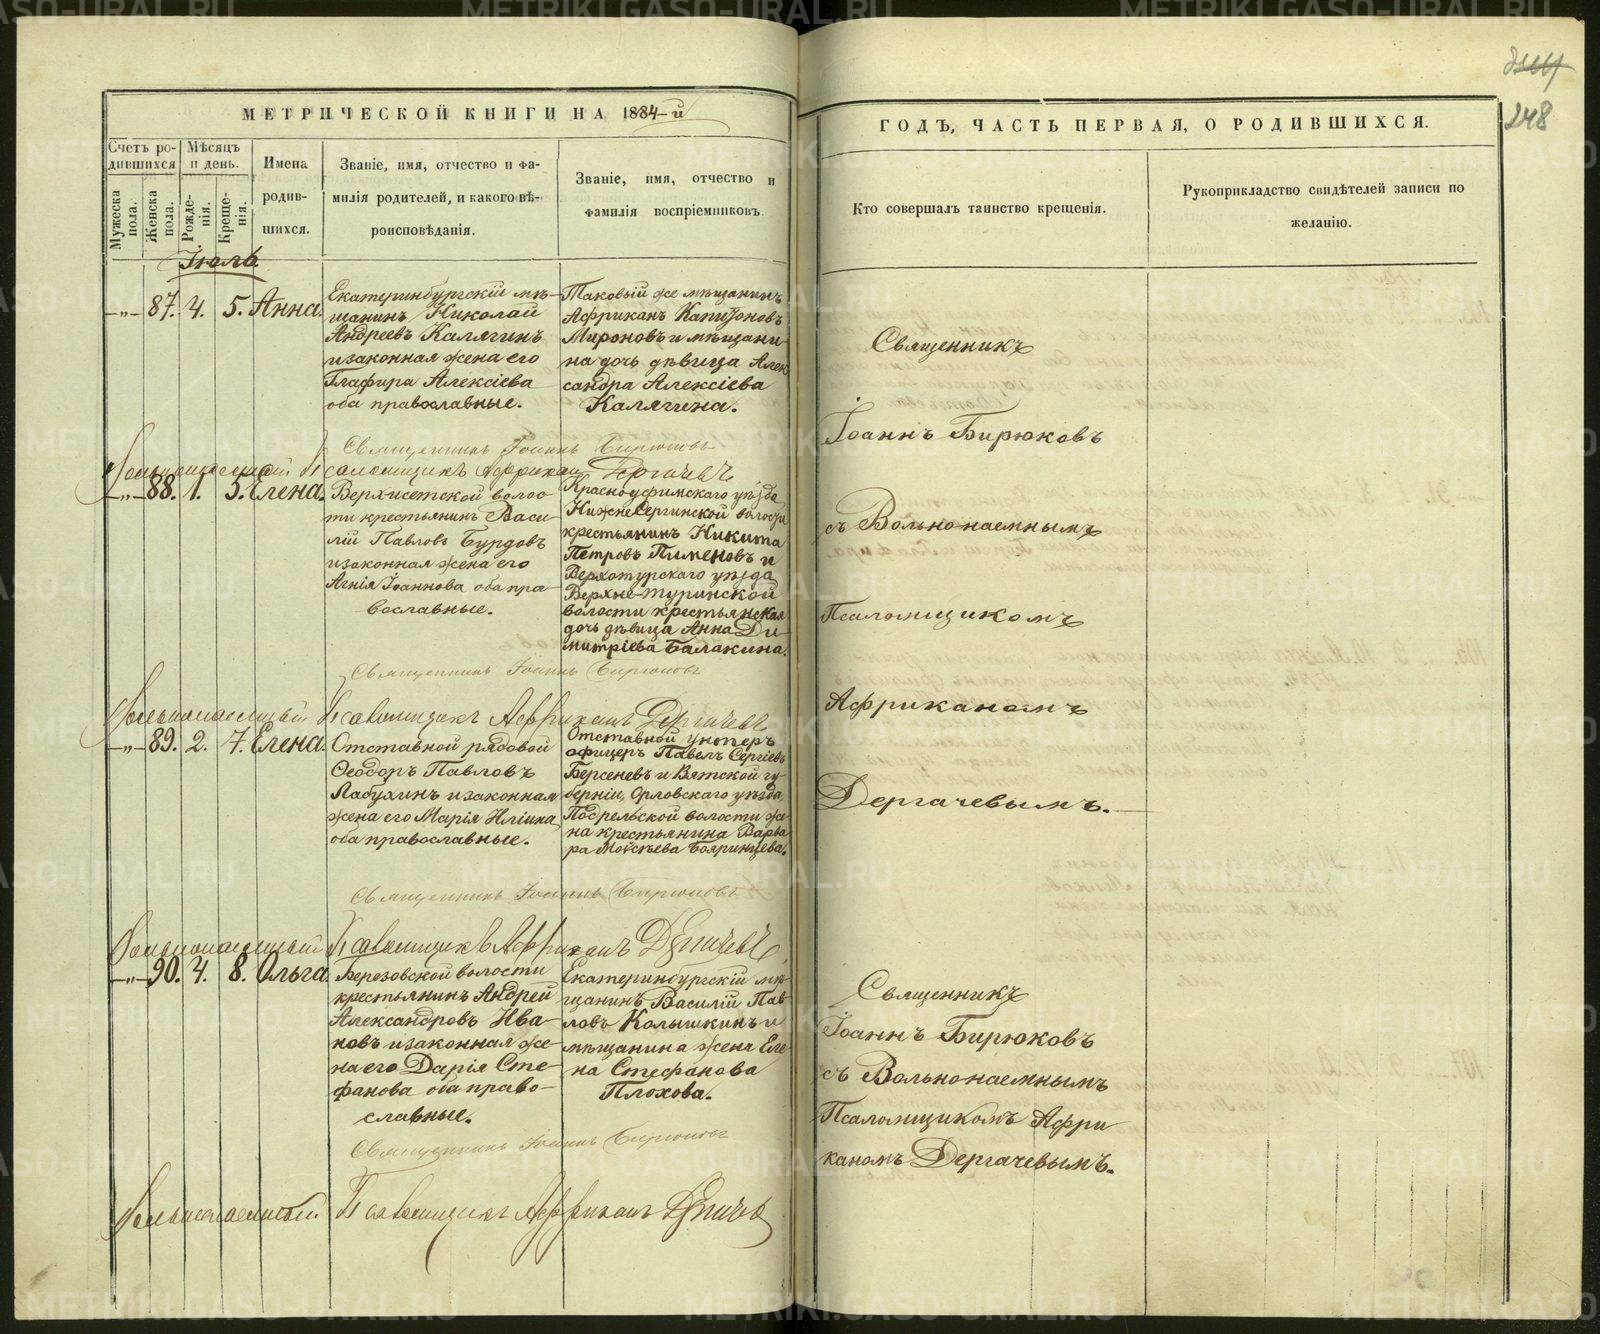 МЕТРИЧЕСКОЙ КНИГИ НА 1884-й
Счетъ родившихся
Мѣсяцъ и день.
Мужеска пола.
Женска пола.
Рожденія.
Крещенія.
Имена родившихся.
Званіе, имя, отчество и фамилія родителей, и какого вѣроисповѣданія.
Званіе, имя, отчество и фамилія воспріемниковъ.
Іюль
-„- 87. 4. 5. Анна.
Екатеринбургскій мѣ-
щанинъ Николай
Андреевъ Калягинъ
и законная жена его
Глафира Алексіева
оба православные.
Таковый же мѣщанинъ
Африканъ Капитоновъ
Мироновъ и мѣщани-
на дочь дѣвица Алек
сандра Алексіева
Калягина.
Священникъ Іоаннъ Бирюковъ
Вольнонаемный Псаломщикъ Африкан Дергачевъ
-„- 88. 1. 5. Елена.
Верхисетской волос-
ти крестьянинъ Васи-
лій Павловъ Бурдовъ
и законная жена его
Агнія Іоаннова оба пра-
вославные.
Красноуфимскаго уѣзда
НижнеСергинской волости
крестьянинъ Никита
Петровъ Пименовъ и
Верхотурскаго уѣзда
Верхне-туринской
волости крестьянская
дочь дѣвица Анна Ди-
митріева Балакина.
Священникъ Іоаннъ Бирюковъ
Вольнонаемный Псаломщикъ Африканъ Дергачевъ
-„- 89. 2. 7. Елена.
Отставной рядовой
Ѳеодоръ Павловъ
Лабухинъ и законная
жена его Марія Иліина
оба православные.
Отставной унтеръ
офицеръ Павелъ Сергіевъ
Берсеневъ и Вятской гу-
берніи, Орловскаго уѣзда,
Подрельской волости же-
на крестьянина Варва
ра Моѵсѣева Бояринцева.
Священникъ Іоаннъ Бирюковъ
Вольнонаемный Псаломщикъ Африканъ Дергачевъ
-„- 90. 4. 8. Ольга.
Березовской волости
крестьянинъ Андрей
Александровъ Ива-
новъ и законная же-
на его Дарія Сте-
фанова оба право-
славные.
Екатеринбургскій мѣ-
щанинъ Василій Пав-
ловъ Колышкинъ и
мѣщанина жена Еле-
на Стефанова
Плохова.
Священникъ Іоаннъ Бирюковъ
Вольнонаемный Псаломщикъ Африканъ Дергачевъ
248
ГОДЪ, ЧАСТЬ ПЕРВАЯ, О РОДИВШИХСЯ.
Кто совершалъ таинство крещенія.
Рукоприкладство свидѣтелей записи по желанію.
Священникъ
Іоаннъ Бирюковъ
съ Вольнонаемнымъ
Псаломщикомъ
Африканомъ
Дергачевымъ.
Священникъ
Іоаннъ Бирюковъ
съ Вольнонаемнымъ
Псаломщикомъ Афри
каномъ Дергачевымъ.
METRIKI.GASO-URAL.RU